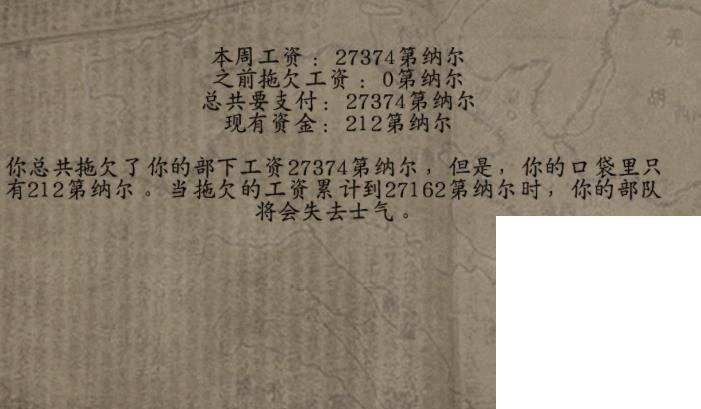 本周工资：27374第纳尔
之前拖欠工资：0第纳尔
总共要支付：27374第纳尔
现有资金：212第纳尔
你总共拖欠了你的部下工资27374第纳尔，但是，你的口袋里只
有212第纳尔。当拖欠的工资累计到27162第纳尔时，你的部队
将会失去士气。